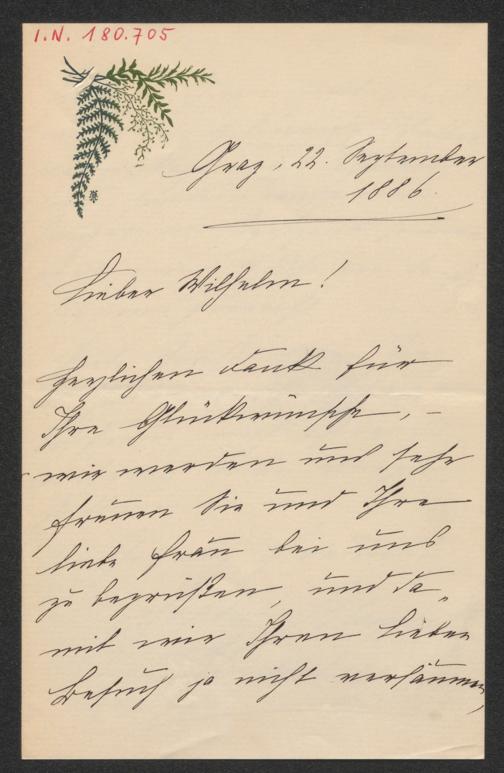 I.N. 180.705
Graz, 22. September
1886.
Lieber Wilhelm!
Herzlichen Dank für
Ihre Glückwünsche, –
wir werden uns sehr
freuen Sie und Ihre
liebe Frau bei uns
zu begrüßen, und da„
mit wir Ihren lieben
Besuch ja nicht versäumen,